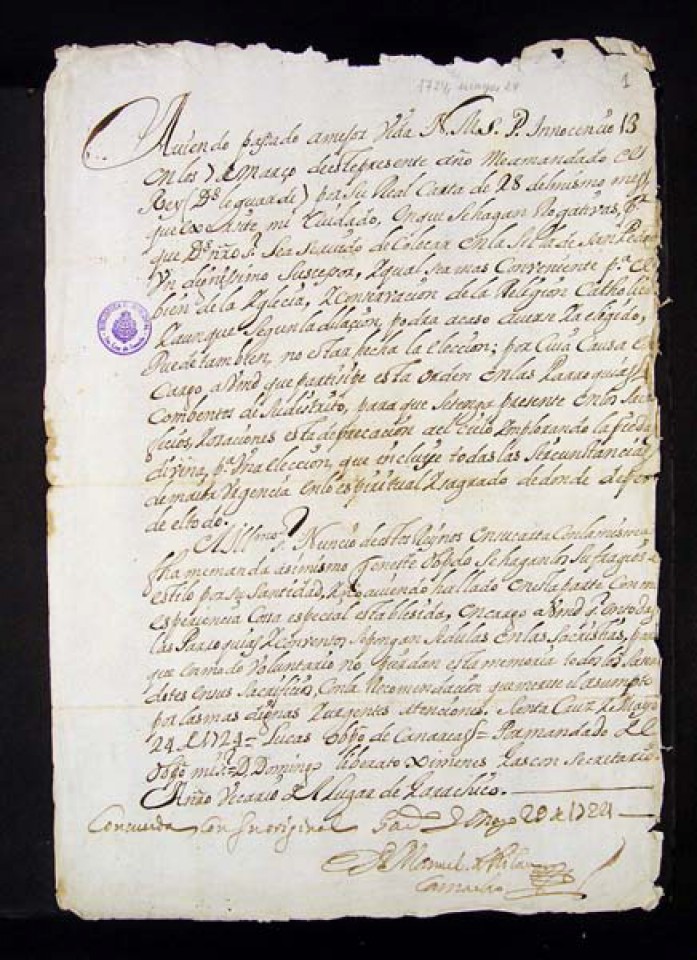 1724, mayo 24
1
Auiendo pasado amejor Vida N. M. S. P. Innocencio 13
En los 7 de Março deeste presente año Meamandado el
Rey (Ds. leguarde) por Su Real Carta de 28 delmismo mes
que execute mi Cuidado, en que se hagan Rogativas, pa.
que Ds. nro. Sr. Sea seruido de Colocar en la Silla de San Pedro
Vn dignissimo Sucessor, qual sea mas Conveniente pa. el
bien de la Yglecia, y Conservacion de la Religion Catholica
Y aunque Segun la dilacion, podra acaso auerse ya elegido,
Puede tambien, no estar hecha la eleccion; por Cuia Causa en
Cargo a Vmd que partisipe esta orden en las Parroquias y
Combentos de Su distrito, para que se tenga presente en los Sacri
ficios, y oraciones esta deprecacion al Cielo Implorando la Pieda
divina, pa. Vna eleccion, que incluye todas las Sircunstancias
de maior Vrgencia en lo espiritual y Sagrado de donde depen
de el todo.
El Illmo. Sr. Nuncio de estos Reynos en su carta Con la misma
fha me manda asimismo q en este Obpdo Se hagan los Sufragios de
estilo por su Santidad, y no auiendo hallado en esta parte Con mi
esperiencia Cosa especial establesida, encargo a Vmd q en todas
las Parroquias y Conventos se pongan sedulas en las Sacristias, para
que en modo Voluntario no pierdan esta memoria todos los Sacer
dotes en sus Sacrificios, Con la Recomendacion que merece el asumpto
por las mas dignas y urgentes atenciones. Santa Cruz y Mayo
24 de 1724 = Lucas Obpo de Canarias = Por mandado del
Obpo mi Sr. = D. Domingo liberato Ximenes Rascon Secretario.
A nro Vecario del Lugar de Garachico.
Concuerda Con Su original Gaco. y Mayo 29 de 1724
Dr. Manuel
Camacho